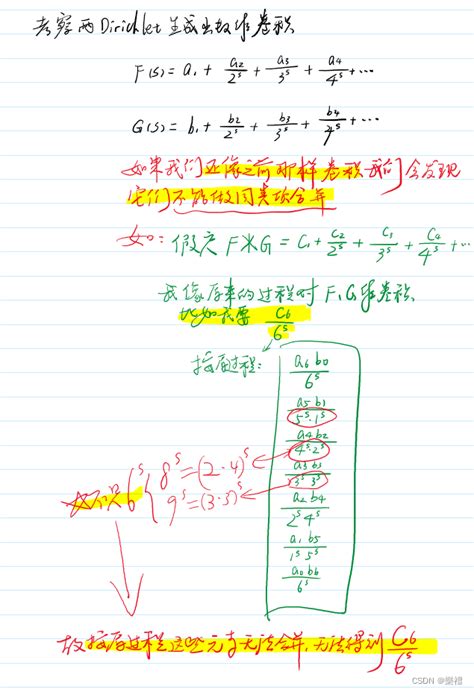 考察两Dirichlet生成出数作卷积
F(s)=a₁+a₂/2ˢ+a₃/3ˢ+a₄/4ˢ+⋯
G(s)=b₁+b₂/2ˢ+b₃/3ˢ+b₄/4ˢ+⋯
如果我们还像之前那样卷积我们会发现
它们不能做同类项合并
如:假定 F*G=C₁+C₂/2ˢ+C₃/3ˢ+C₄/4ˢ+⋯
我像原来的过程对F,G作卷积
比如我要 C₆/6ˢ
按原过程:
a₆b₀/6ˢ
a₅b₁/5ˢ·1ˢ
a₄b₂/4ˢ·2ˢ
8ˢ=(2·4)ˢ
a₃b₃/3ˢ·3ˢ
6ˢ{
9ˢ=(3·3)ˢ
a₂b₄/2ˢ4ˢ
a₁b₅/1ˢ5ˢ
a₀b₆/6ˢ
故按原过程这些元素无法合并,无法得到 C₆/6ˢ
CSDN @樂禮